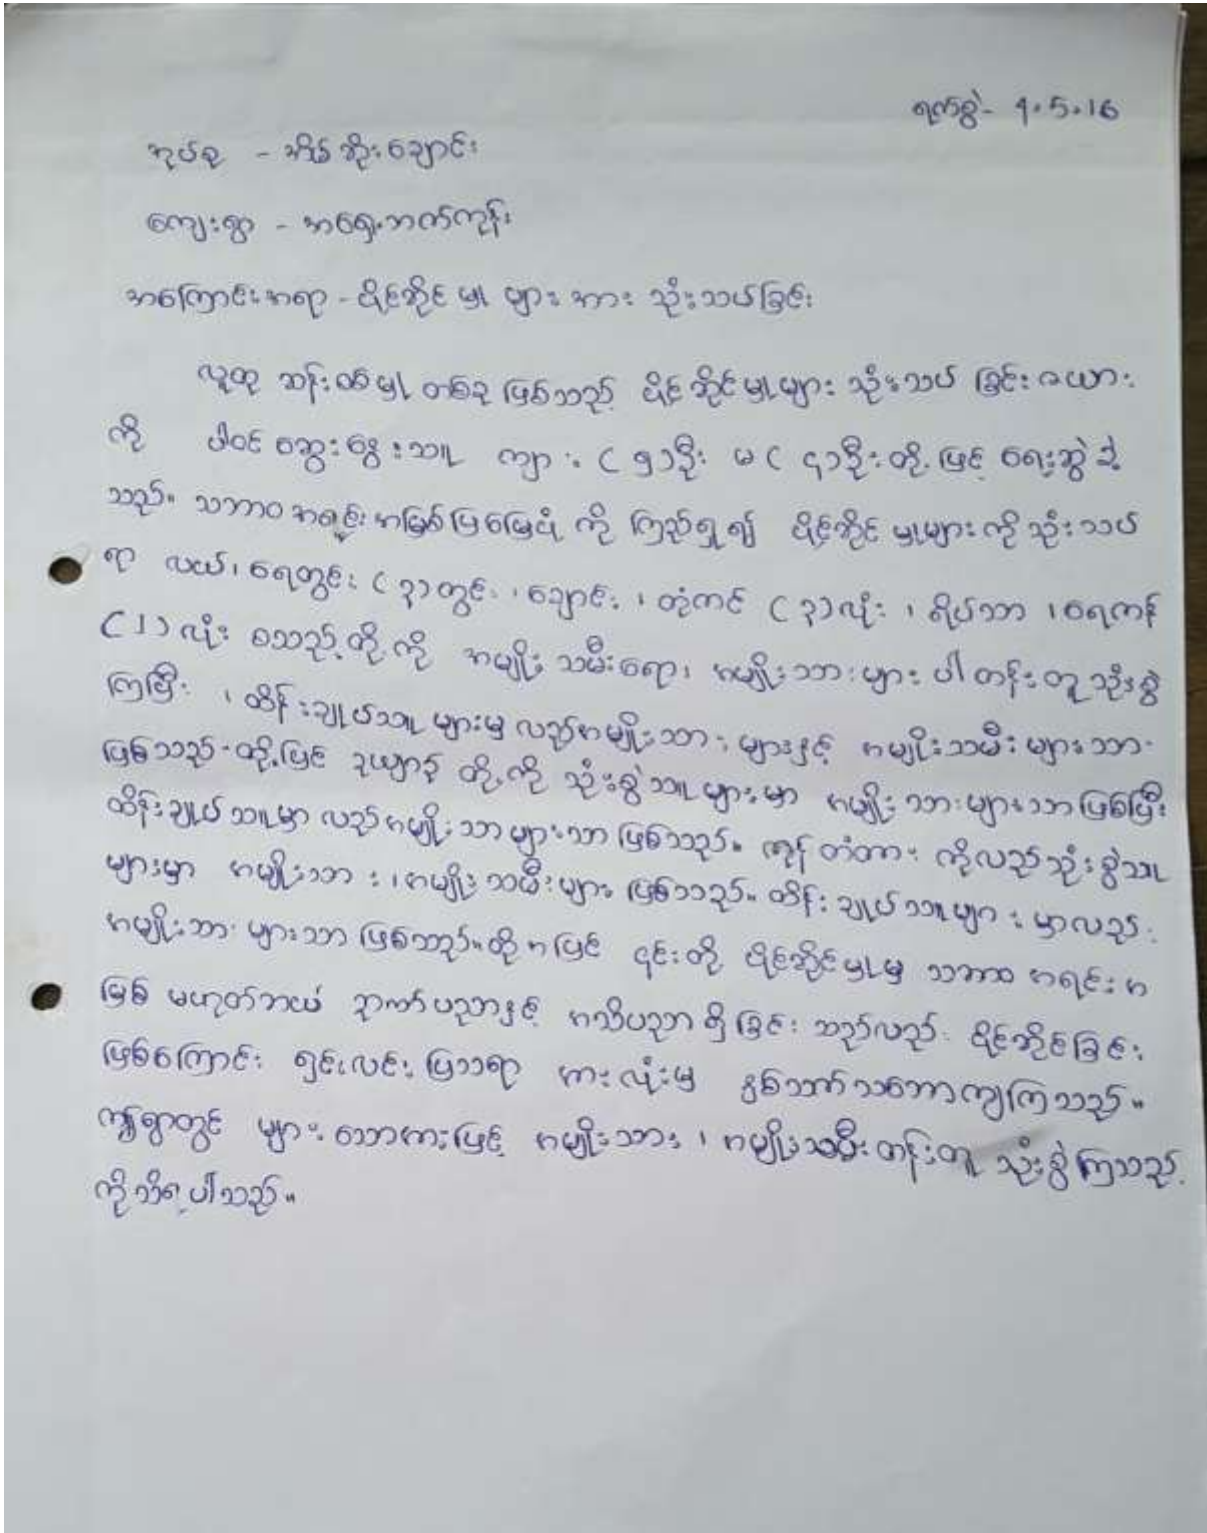 ရက်စွဲ- 9.5.16
အုပ်စု - အိမ်ဆိုးချောင်း
ကျေးရွာ - အရှေ့ဘက်ကုန်း
အကြောင်းအရာ - ပိုင်ဆိုင်မှု များ အား သုံးသပ်ခြင်း
လူထု ဆန်းစစ်မှု တစ်ခု ဖြစ်သည့် ပိုင်ဆိုင်မှုများ သုံးသပ် ခြင်း ဇယား
ကို ပါဝင် ဆွေးနွေးသူ ကျား (၅)ဦး မ (၄)ဦးတို့ဖြင့် ရေးဆွဲခဲ့
သည်။ သဘာဝအရင်းအမြစ်ပြမြေပုံ ကို ကြည့်ရှု၍ ပိုင်ဆိုင်မှုများ ကို သုံးသပ်
ရာ လယ်၊ ရေတွင်း (၃)တွင်း ၊ ချောင်း ၊ တုံကင် (၃)လုံး ၊ ရိပ်သာ ၊ ရေကန်
(၂)လုံး စသည့်တို့ကို အမျိုးသမီးရော၊ အမျိုးသားများ ပါ တန်းတူ သုံးစွဲ
ကြပြီး ၊ ထိန်းချုပ်သူ များမှ လည်းအမျိုးသား များနှင့် အမျိုးသမီး များသာ
ဖြစ်သည်- ထို့ပြင် ဥယျာဉ် တို့ကို သုံးစွဲသူ များမှာ အမျိုးသားများသာ ဖြစ်ပြီး
ထိန်းချုပ်သူမှာ လည်းအမျိုးသားများသာ ဖြစ်သည်။ ကုန်တံတား ကိုလည်းသုံးစွဲသူ
များမှာ အမျိုးသား ၊ အမျိုးသမီးများ ဖြစ်သည်။ ထိန်းချုပ်သူများ မှာလည်း
အမျိုးသားများသာ ဖြစ်သည်။ ထို့အပြင် ၎င်းတို့ ပိုင်ဆိုင်မှုမှ သဘာဝအရင်းအ
မြစ် မဟုတ်ဘယ် ဉာဏ်ပညာနှင့် အသိပညာ ရှိခြင်း သည်လည်း ပိုင်ဆိုင်ခြင်း
ဖြစ်ကြောင်း ရှင်းလင်း ပြသရာ အားလုံးမှ နှစ်သက်သဘောကျကြသည်။
ဤရွာတွင် များ သောအားဖြင့် အမျိုးသား ၊ အမျိုးသမီး တန်းတူ သုံးစွဲကြသည်
ကိုသိရပါသည်။